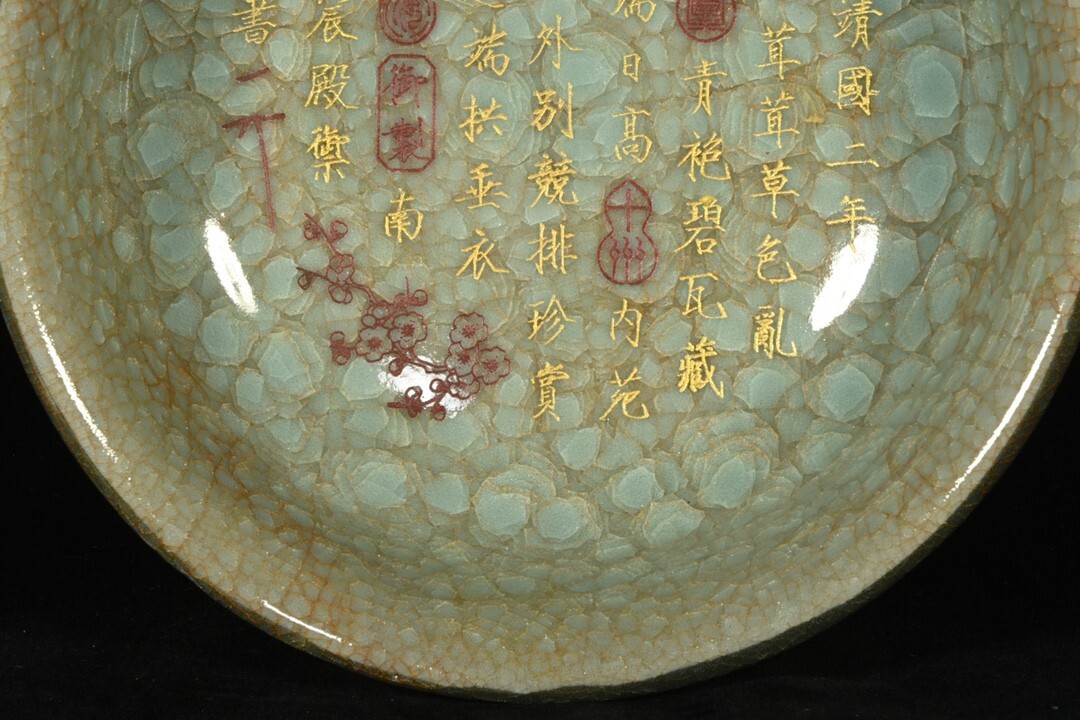 靖國二年
茸茸草色亂
青袍碧瓦藏
日高
內苑
外别競排珍賞
端拱垂衣
御製
南
宸殿禦
書